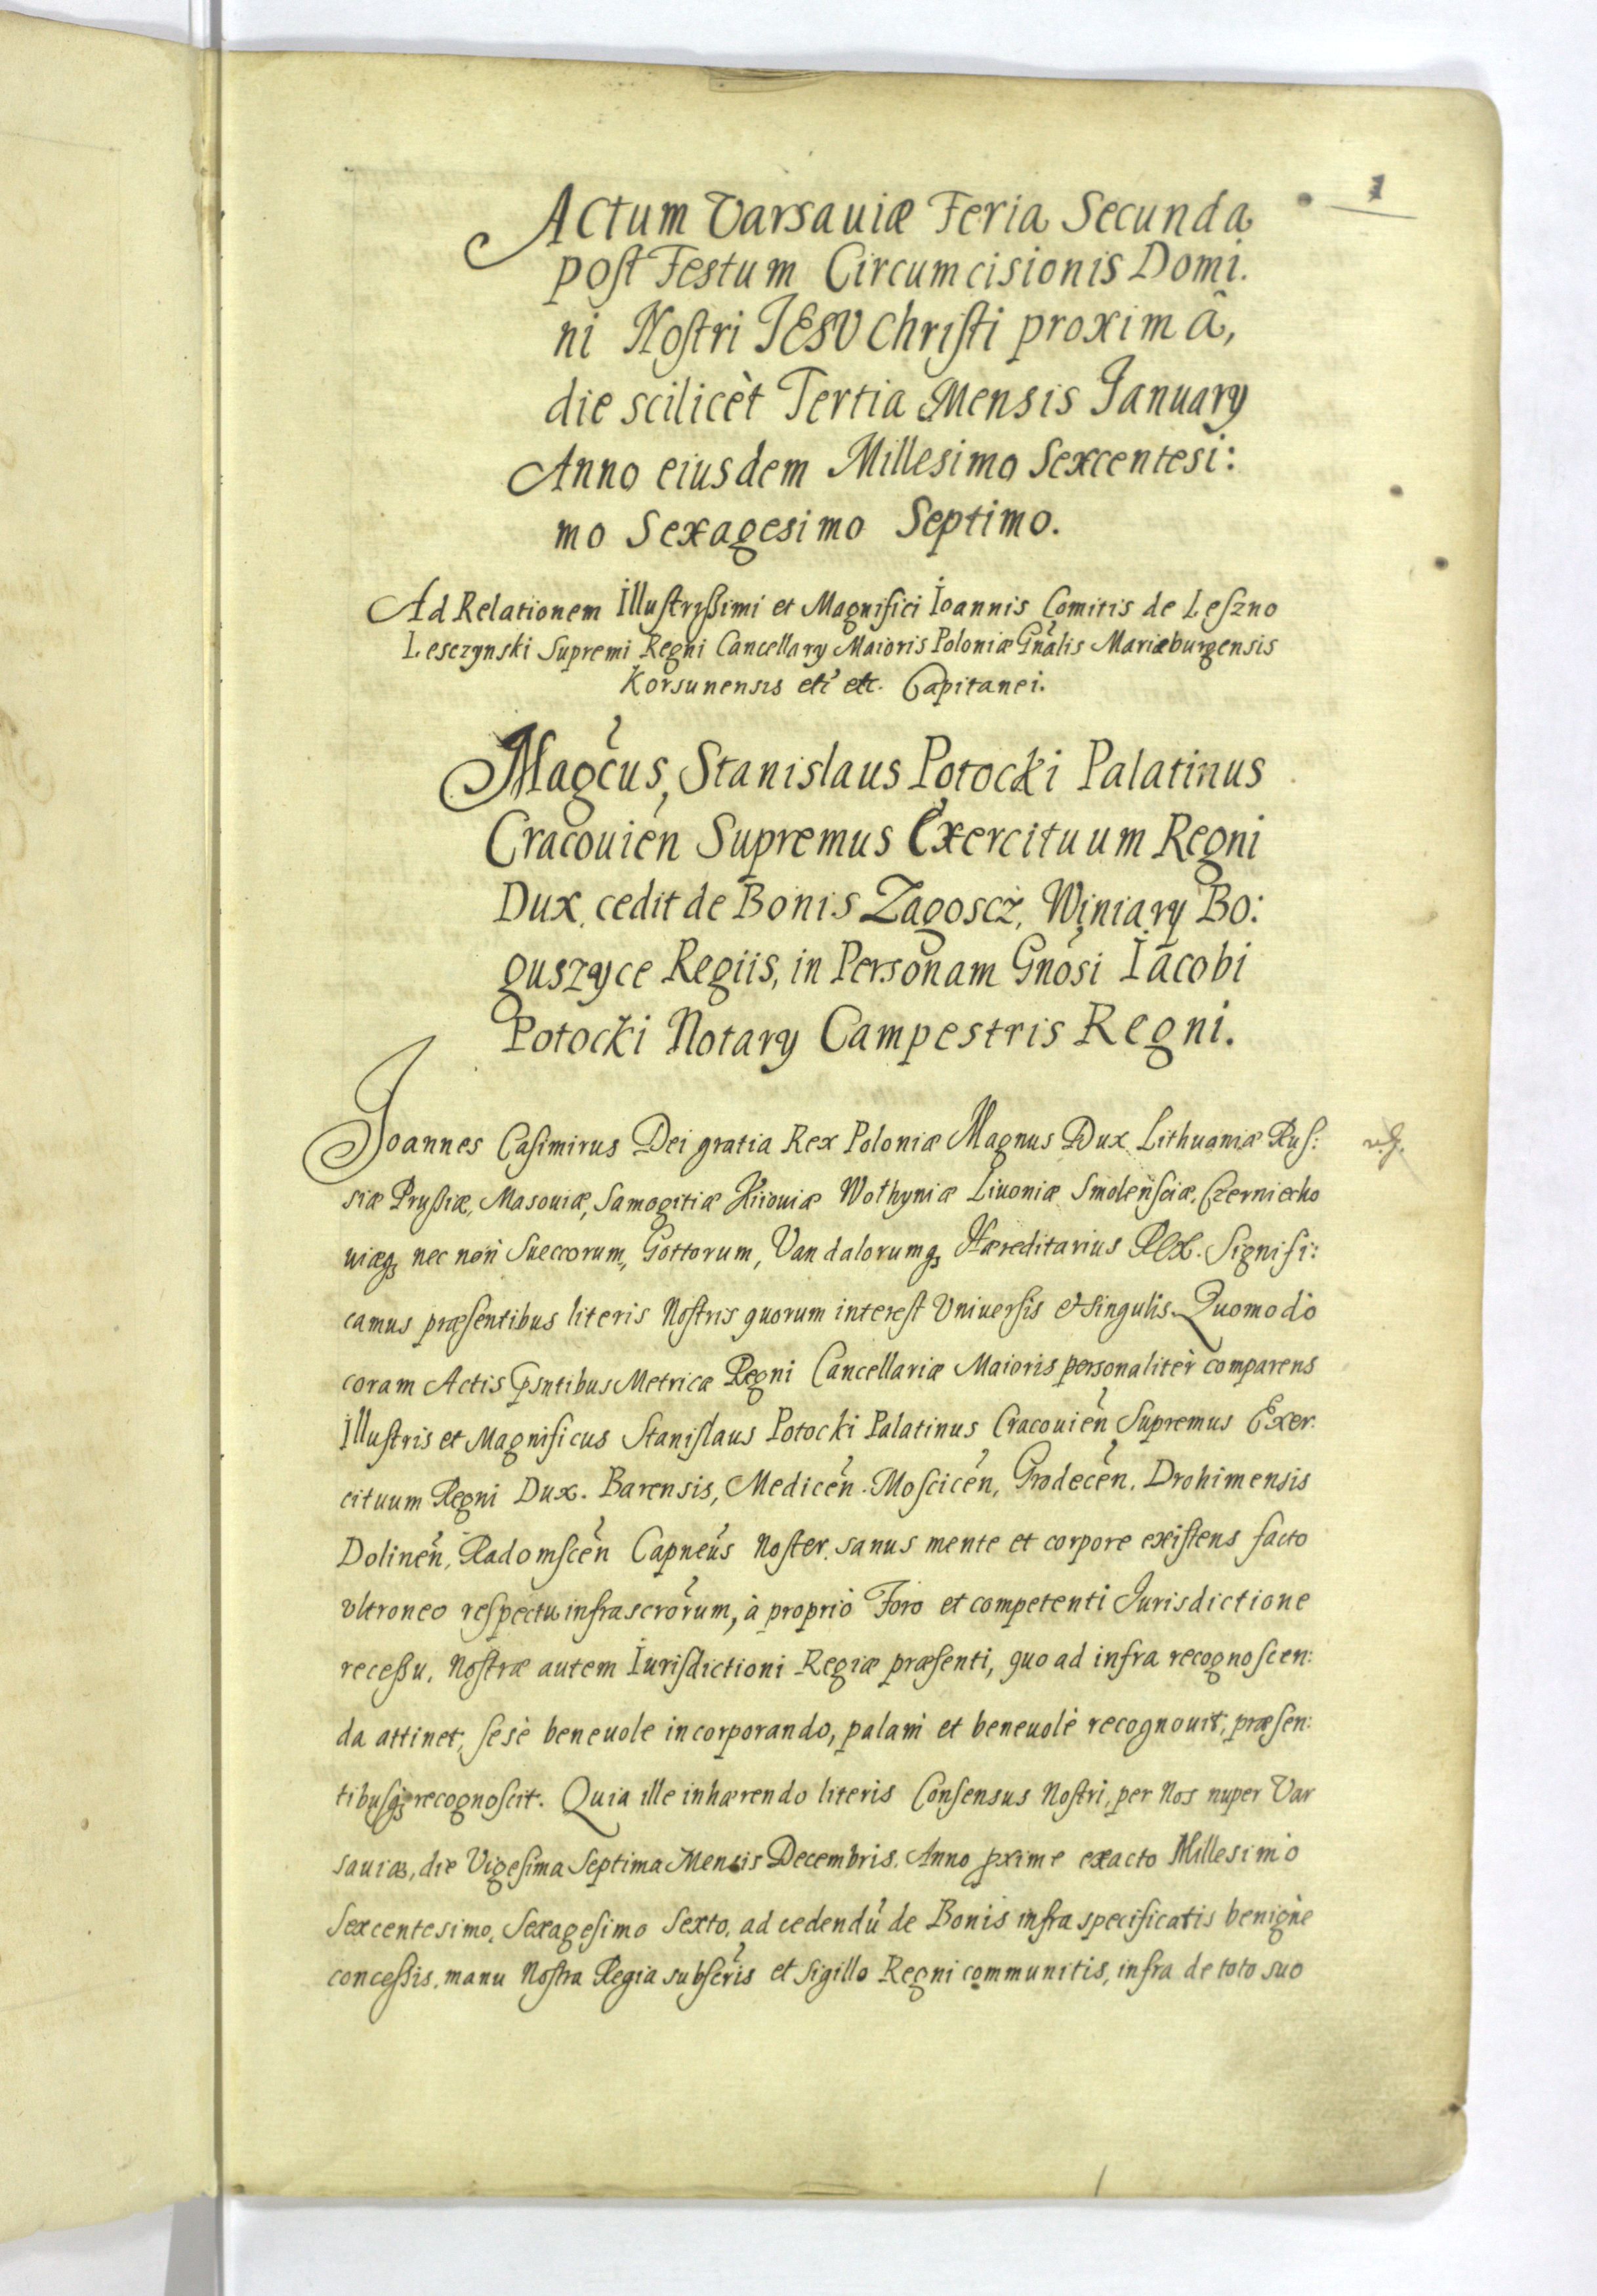 1
Actum Varsauiæ Feria Secunda
post Festum Circumcisionis Domi.
ni Nostri JESV Christi proximâ,
die scilicèt Tertia Mensis January
Anno eiusdem Millesimo Sexcentesi:
mo Sexagesimo Septimo.
Ad Relationem Illustrissimi et Magnifici Ioannis Comitis de Leszno
Lesczynski Supremi Regni Cancellary Maioris Poloniæ Gnalis Mariæburgensis
Korsunensis etc etc. Capitanei.
Magcus, Stanislaus Potocki Palatinus
Cracouien Supremus Exercituum Regni
Dux, cedit de Bonis Zagoscz, Winiary Bo:
guszyce Regiis, in Personam Gnosi Iacobi
Potocki Notary Campestris Regni.
Joannes Casimirus Dei gratia Rex Poloniæ Magnus Dux Lithuaniæ Rus:
siæ Prussiæ, Masouiæ, Samogitiæ Kiiouiæ Wolhyniæ Liuoniæ Smolensciæ, Czerniecho
uiæq₃ nec non Sueccorum, Gottorum, Vandalorumq₃ Hæreditarius Rex. Signifi:
camus præsentibus literis Nostris quorum interest Vniuersis et singulis. Quomodo
coram Actis psntibus Metricæ Regni Cancellariæ Maioris personalitèr comparens
Illustris et Magnificus Stanislaus Potocki Palatinus Cracouien Supremus Exer:
cituum Regni Dux. Barensis, Medicen. Moscicen, Grodecen. Drohimensis
Dolinen, Radomscen Capneus Noster, sanus mente et corpore existens facto
vltroneo respectu infrascrorum, à proprio Foro et competenti Jurisdictione
recessu, Nostræ autem Iurisdictioni Regiæ præsenti, quo ad infra recognoscen:
da attinet, sesè beneuole incorporando, palam et beneuolè recognouit, præsen:
tibusq₃ recognoscit. Quia ille inhærendo literis Consensus Nostri, per Nos nuper Var
sauiæ, die Vigesima Septima Mensis Decembris. Anno pxime exacto Millesimo
Sexcentesimo, Sexagesimo Sexto, ad cedendu de Bonis infra specificatis benignè
concessis, manu Nostra Regia subscris et Sigillo Regni communitis, infra de toto suo